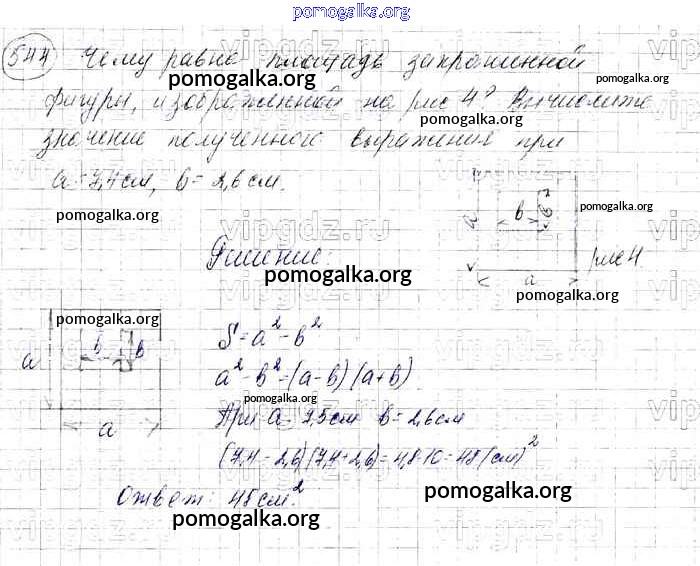 pomogalka.org
544 Чему равна площадь закрашенной
pomogalka.org
фигуры, изображенной на рис 4? Вычислите
pomogalka.org
значение полученного выражения при
a = 7,4 см, b = 2,6 см.
pomogalka.org
a b b a рис 4
pomogalka.org
Решение:
pomogalka.org
pomogalka.org
pomogalka.org
a b b a
S = a² - b²
a² - b² = (a - b) (a + b)
pomogalka.org
При a = 7,5 см b = 2,6 см
(7,4 - 2,6) (7,4 + 2,6) = 4,8·10 = 48 (см)²
pomogalka.org
Ответ: 48 см².
pomogalka.org
pomogalka.org